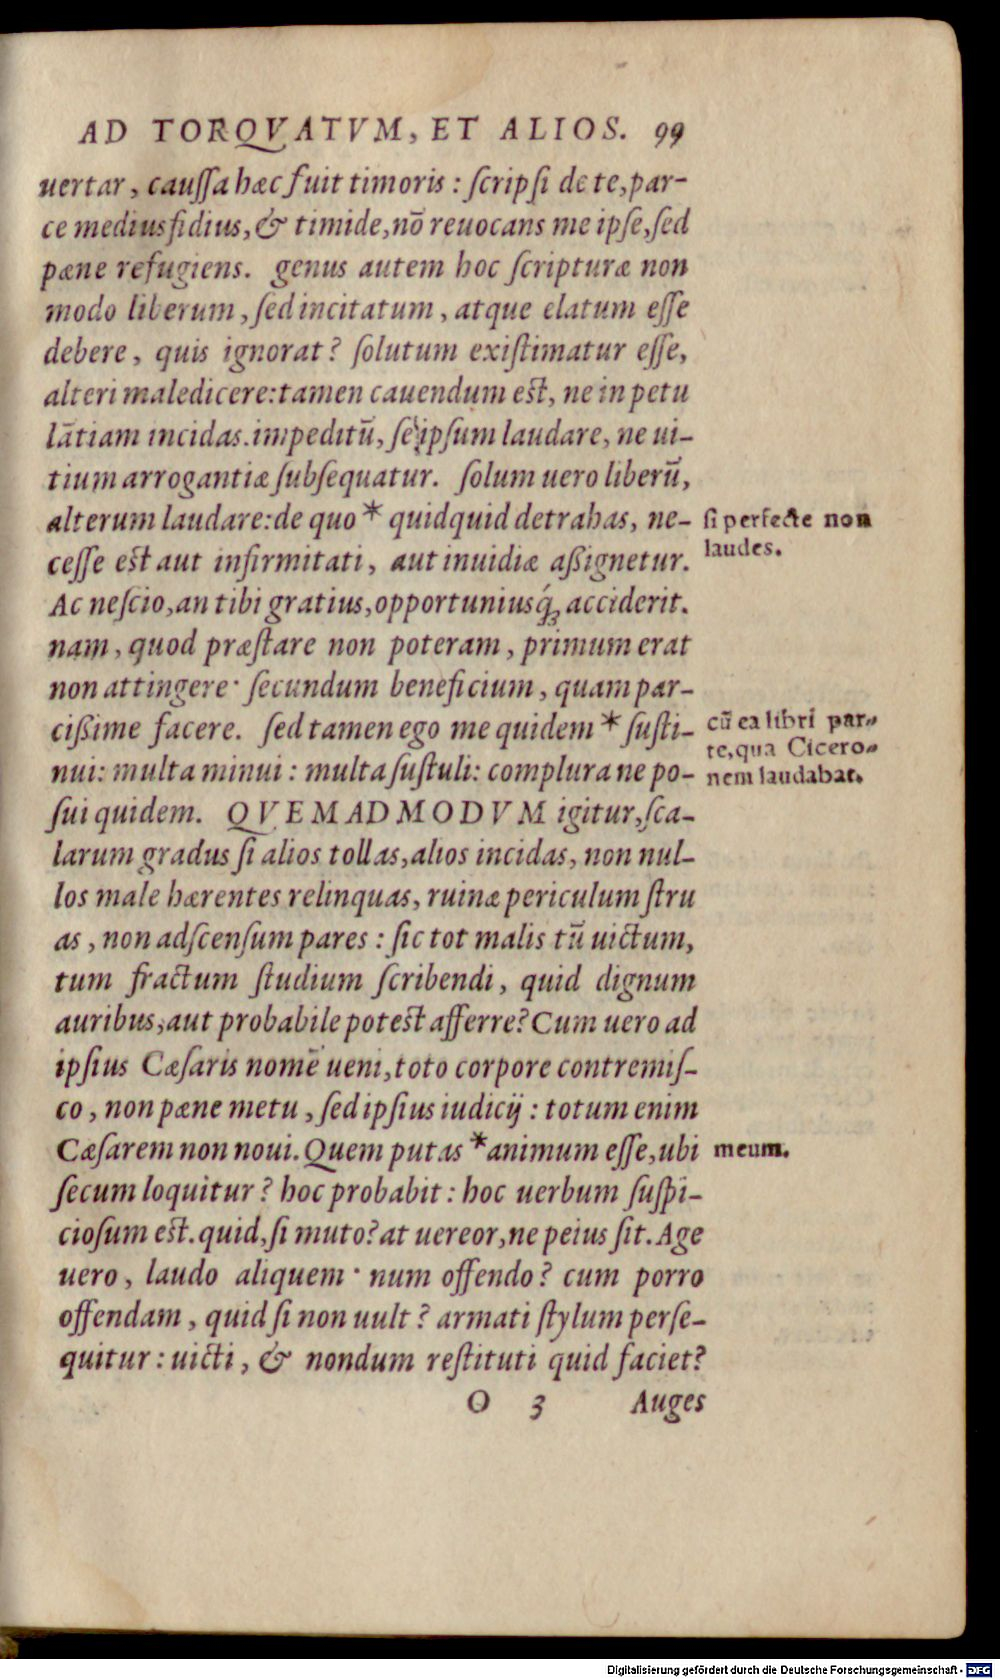 AD TORQVATVM, ET ALIOS. 99
uertar, cauſſa hæc fuit timoris: ſcripſi de te, par-
ce mediusfidius, & timide, nō reuocans me ipſe, ſed
pæne refugiens. genus autem hoc ſcripturæ non
modo liberum, ſed incitatum, atque elatum eſſe
debere, quis ignorat? ſolutum exiſtimatur eſſe,
alteri maledicere: tamen cauendum eſt, ne in petu
lātiam incidas. impeditū, ſe ipſum laudare, ne ui-
tium arrogantiæ ſubſequatur. ſolum uero liberū,
alterum laudare: de quo * quidquid detrahas, ne-
ſi perfecte non
laudes.
ceſſe eſt aut infirmitati, aut inuidiæ aßignetur.
Ac neſcio, an tibi gratius, opportuniusq́; acciderit.
nam, quod præſtare non poteram, primum erat
non attingere· ſecundum beneficium, quam par-
cißime facere. ſed tamen ego me quidem * ſuſti-
cū ea libri par-
te, qua Cicero-
nem laudabat.
nui: multa minui: multa ſuſtuli: complura ne po-
ſui quidem. QVEMADMODVM igitur, ſca-
larum gradus ſi alios tollas, alios incidas, non nul-
los male hærentes relinquas, ruinæ periculum ſtru
as, non adſcenſum pares: ſic tot malis tū uictum,
tum fractum ſtudium ſcribendi, quid dignum
auribus, aut probabile poteſt afferre? Cum uero ad
ipſius Cæſaris nomē ueni, toto corpore contremiſ-
co, non pæne metu, ſed ipſius iudicij: totum enim
Cæſarem non noui. Quem putas * animum eſſe, ubi
meum.
ſecum loquitur? hoc probabit: hoc uerbum ſuſpi-
cioſum eſt. quid, ſi muto? at uereor, ne peius ſit. Age
uero, laudo aliquem· num offendo? cum porro
offendam, quid ſi non uult? armati ſtylum perſe-
quitur: uicti, & nondum reſtituti quid faciet?
O 3 Auges
Digitalisierung gefördert durch die Deutsche Forschungsgemeinschaft - DFG